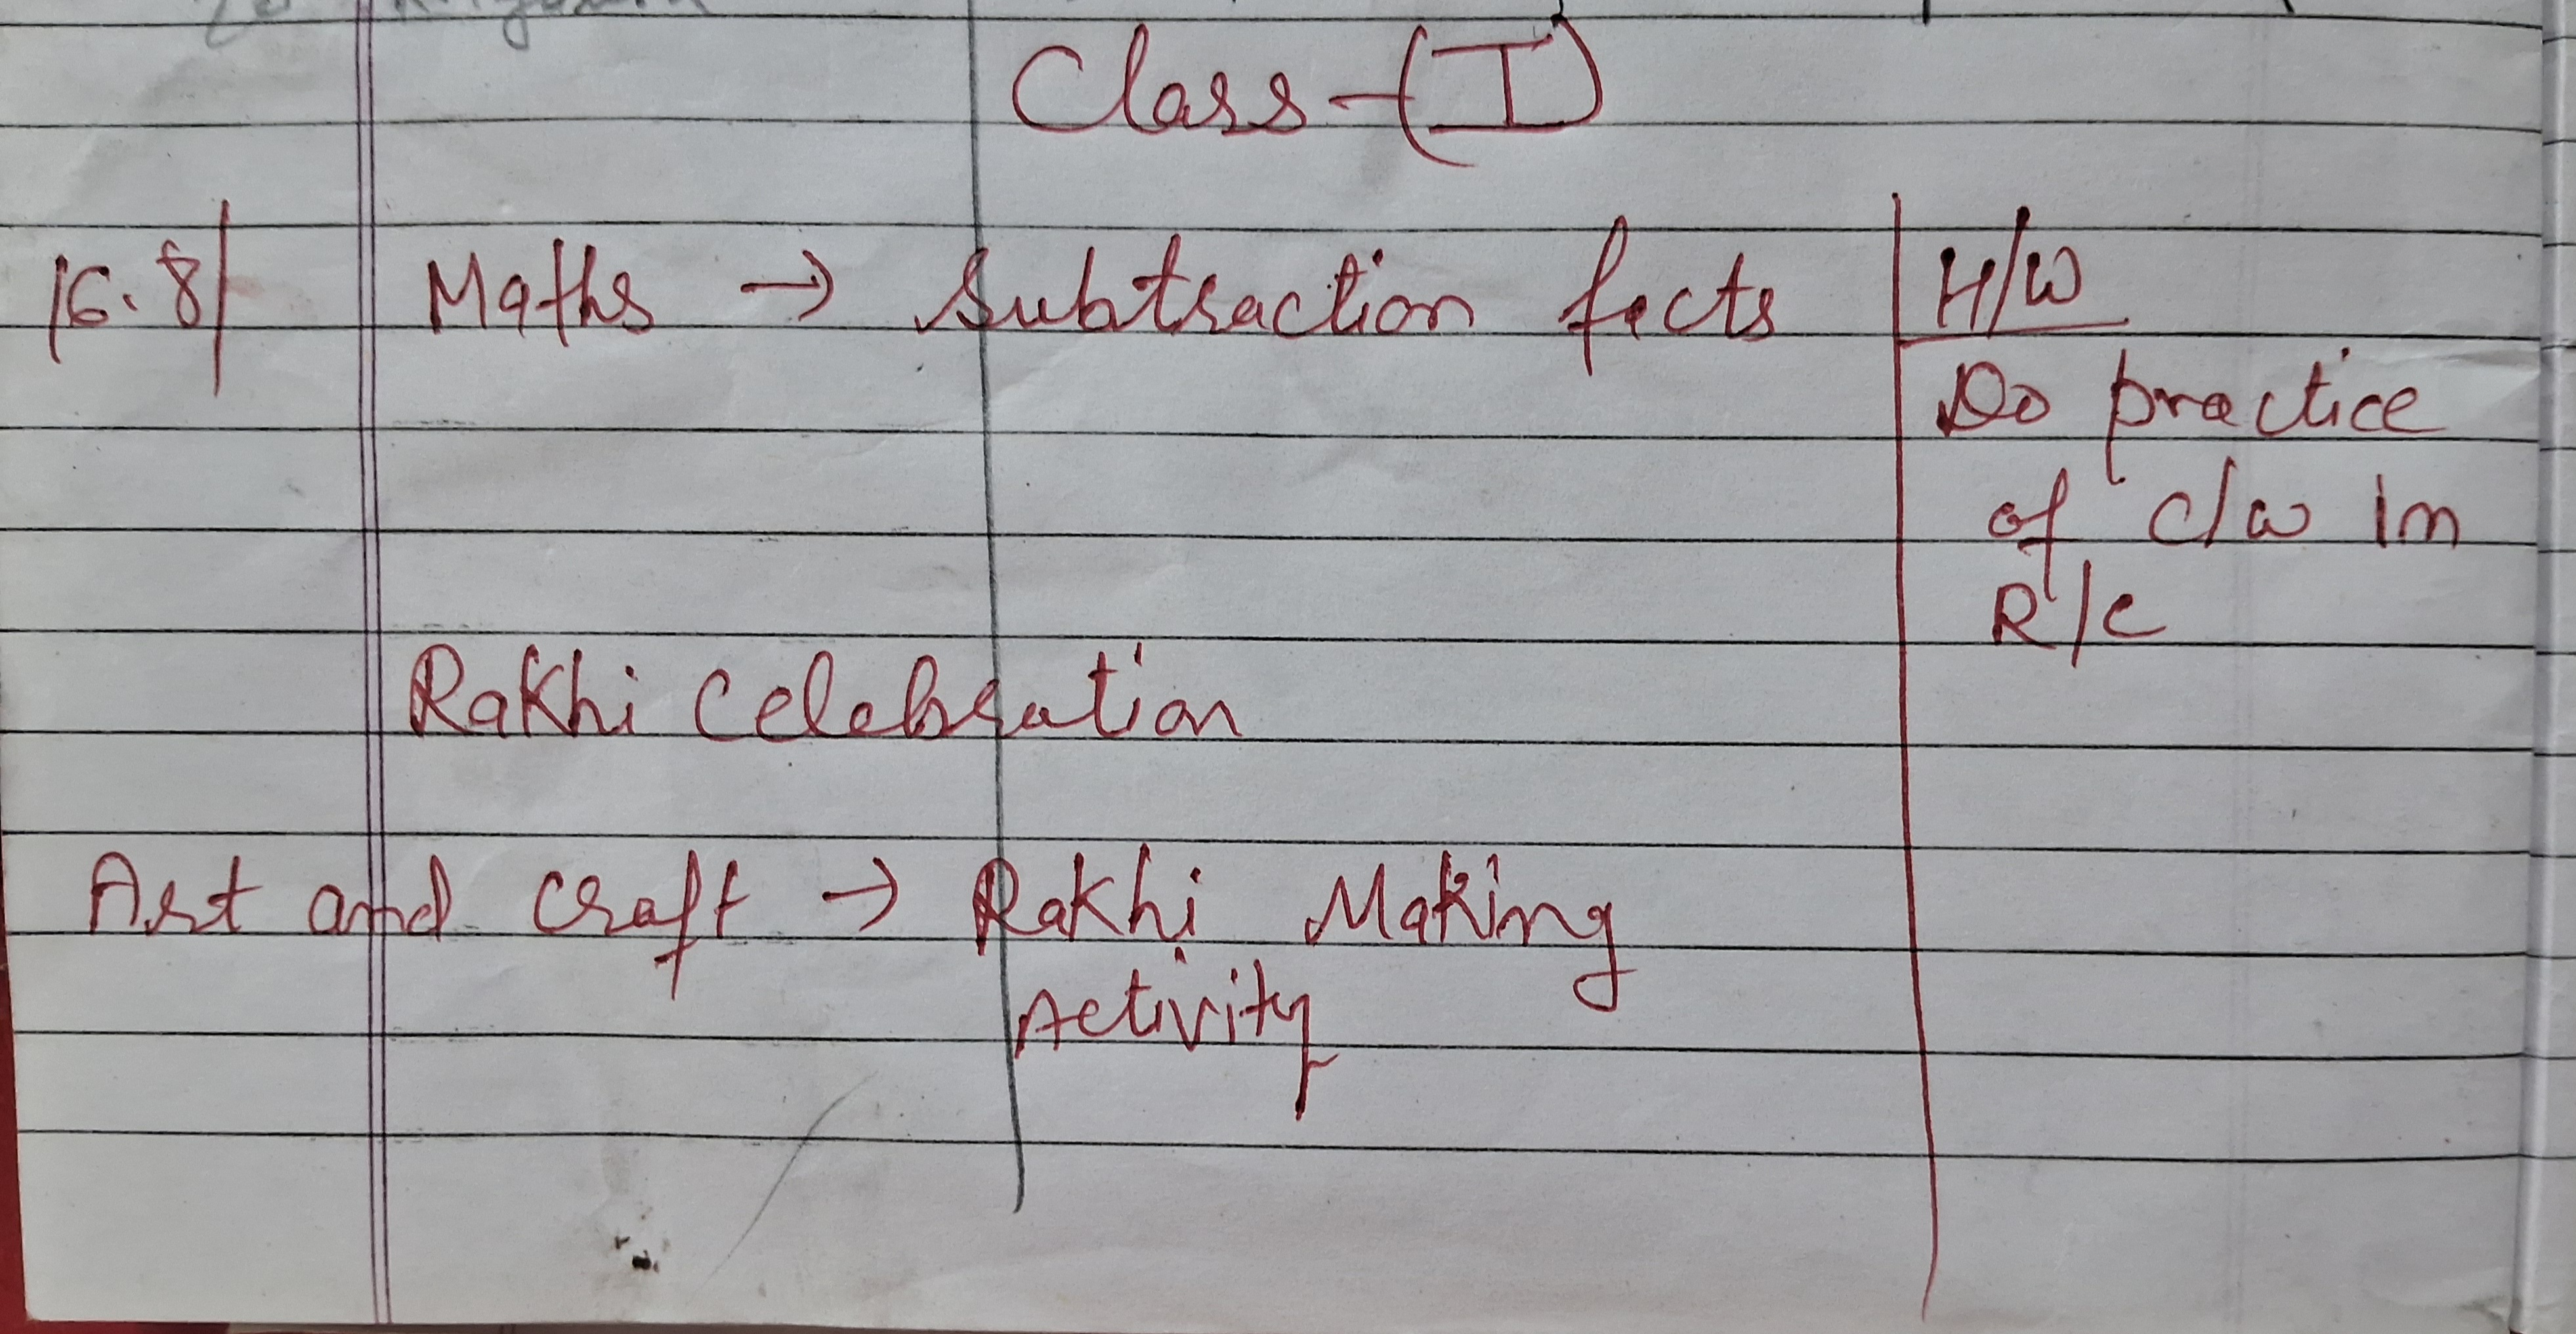 Class-(I)
16.8| Maths → Subtraction facts | H/W
Do practice
of c/w in
R/c
Rakhi Celebration
Art and craft → Rakhi Making
Activity